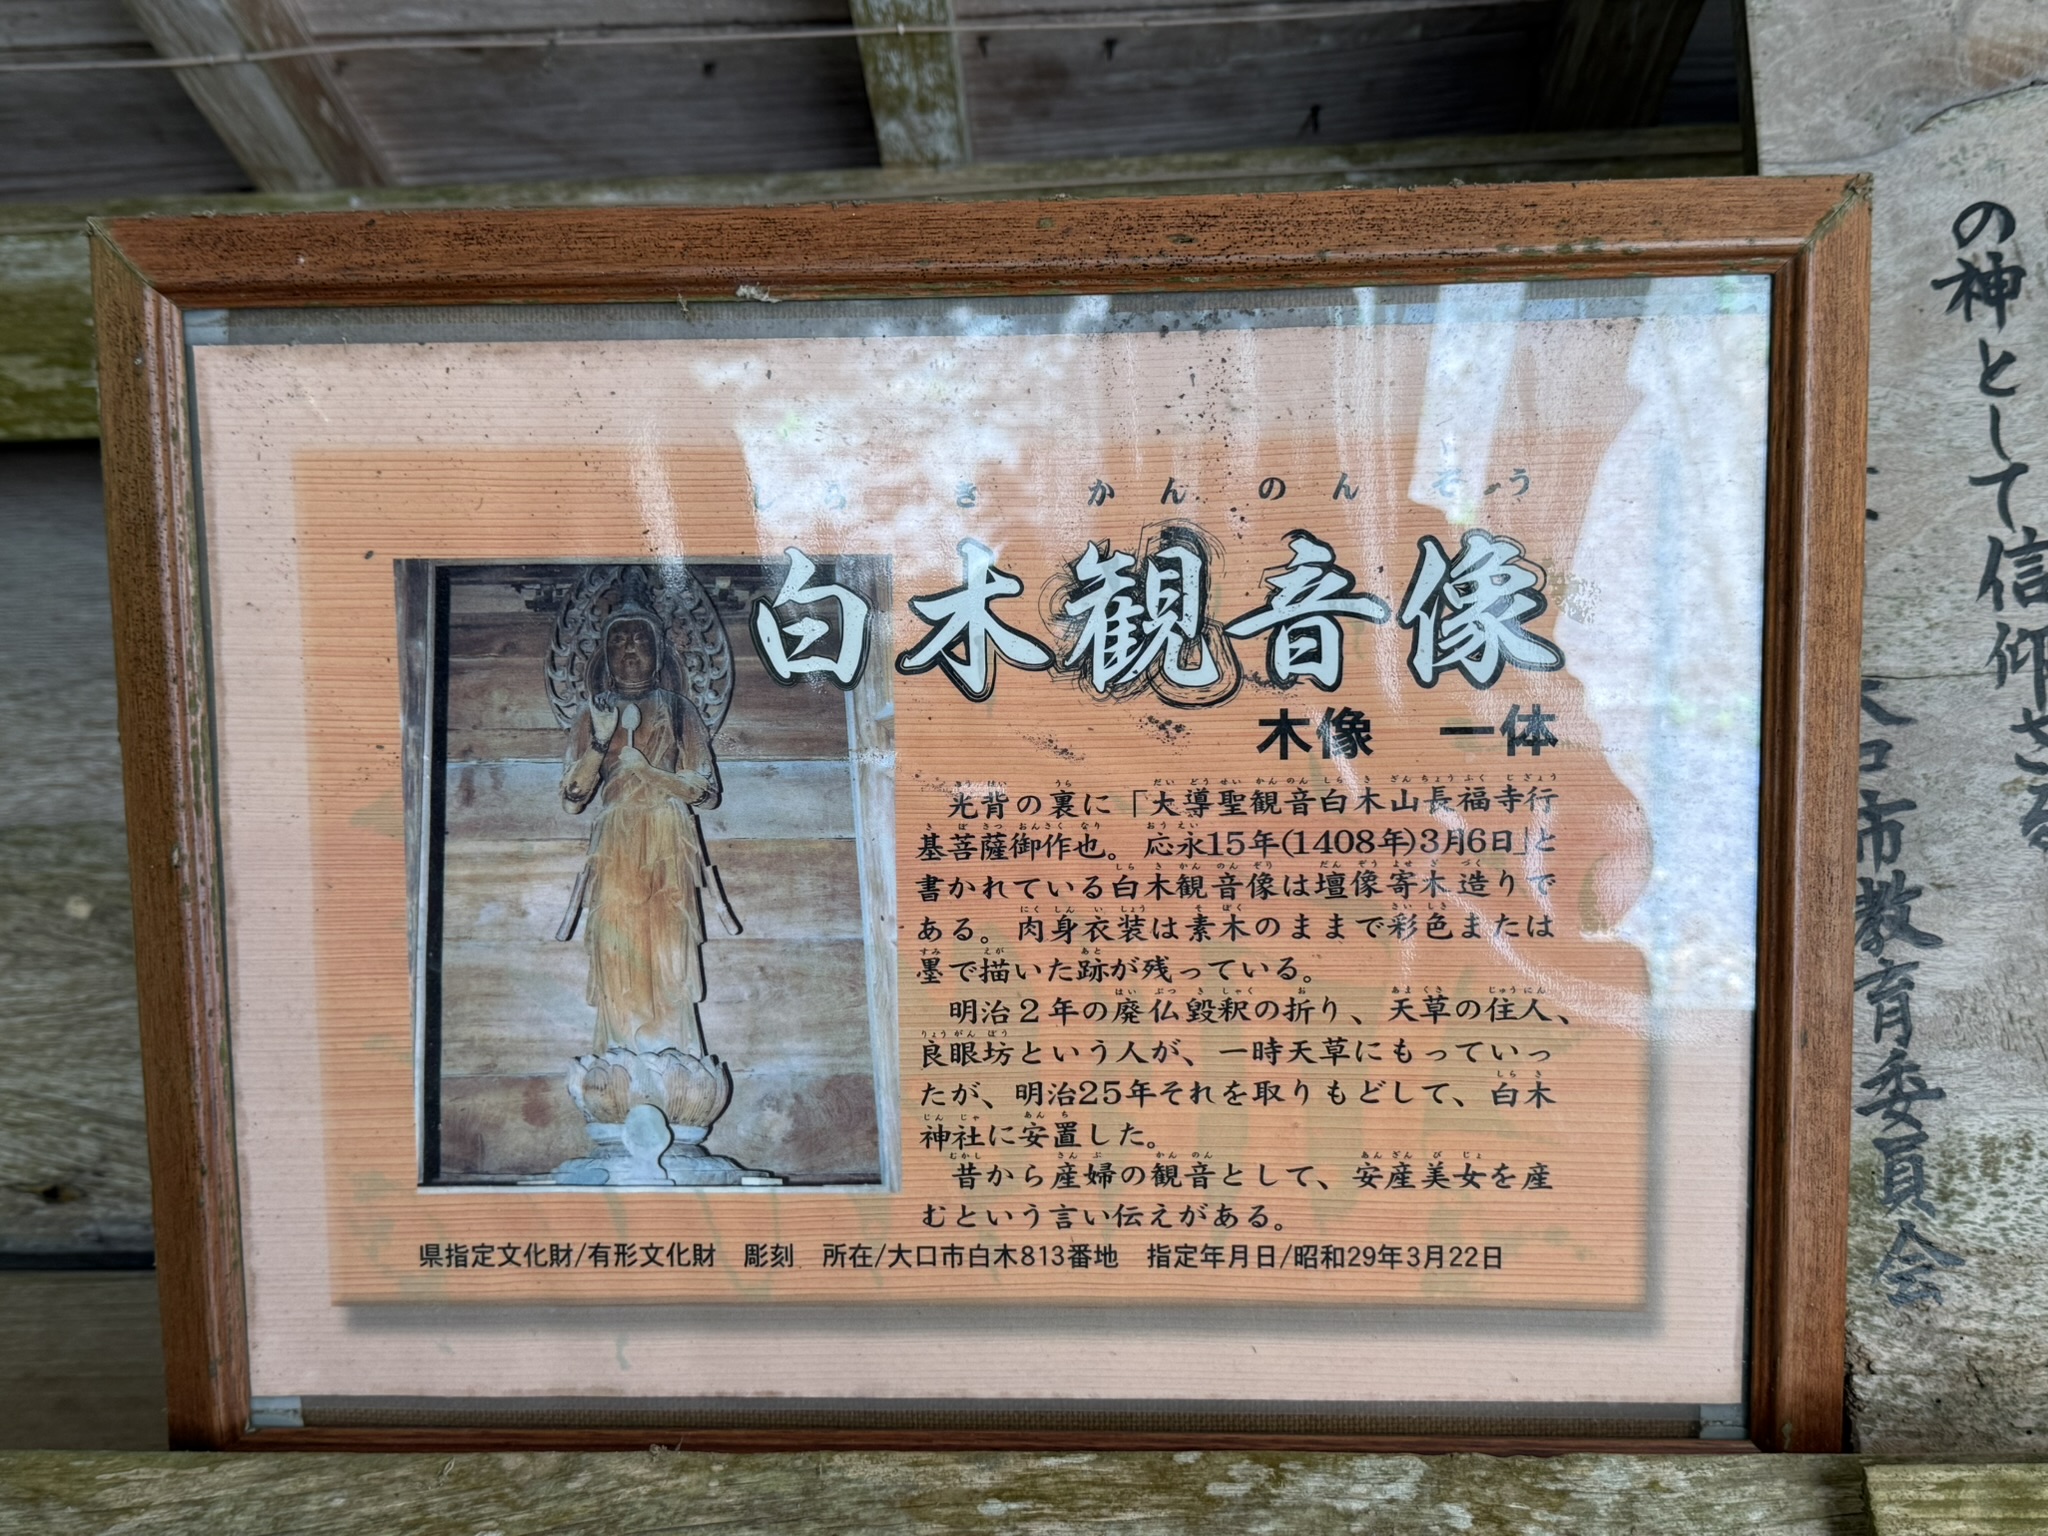 しらき かんのんぞう
白木観音像
木像　一体
光背の裏に「大導聖観音白木山長福寺行
基菩薩御作也。応永15年(1408年)3月6日」と
書かれている白木観音像は壇像寄木造りで
ある。肉身衣装は素木のままで彩色または
墨で描いた跡が残っている。
明治２年の廃仏毀釈の折り、天草の住人、
良眼坊という人が、一時天草にもっていっ
たが、明治25年それを取りもどして、白木
神社に安置した。
昔から産婦の観音として、安産美女を産
むという言い伝えがある。
県指定文化財/有形文化財　彫刻　所在/大口市白木813番地　指定年月日/昭和29年3月22日
の神として信仰さる
大口市教育委員会